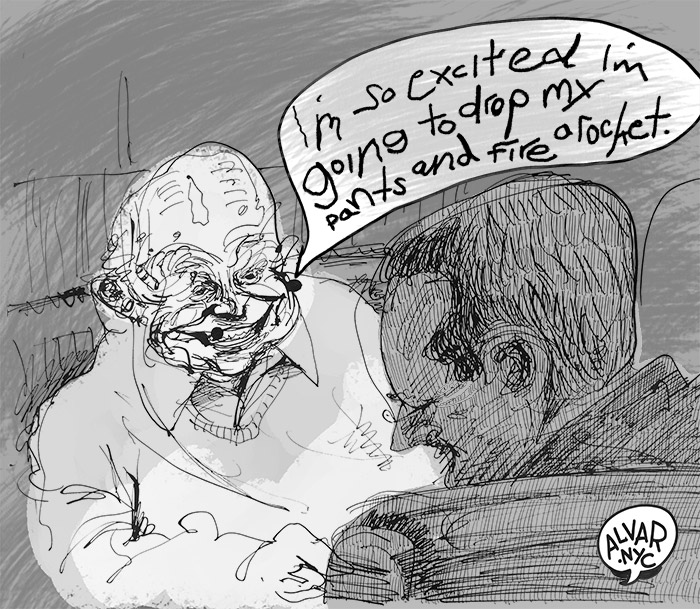 I'm so excited I'm
going to drop my
pants and fire a rocket.
ALVAR
.NYC